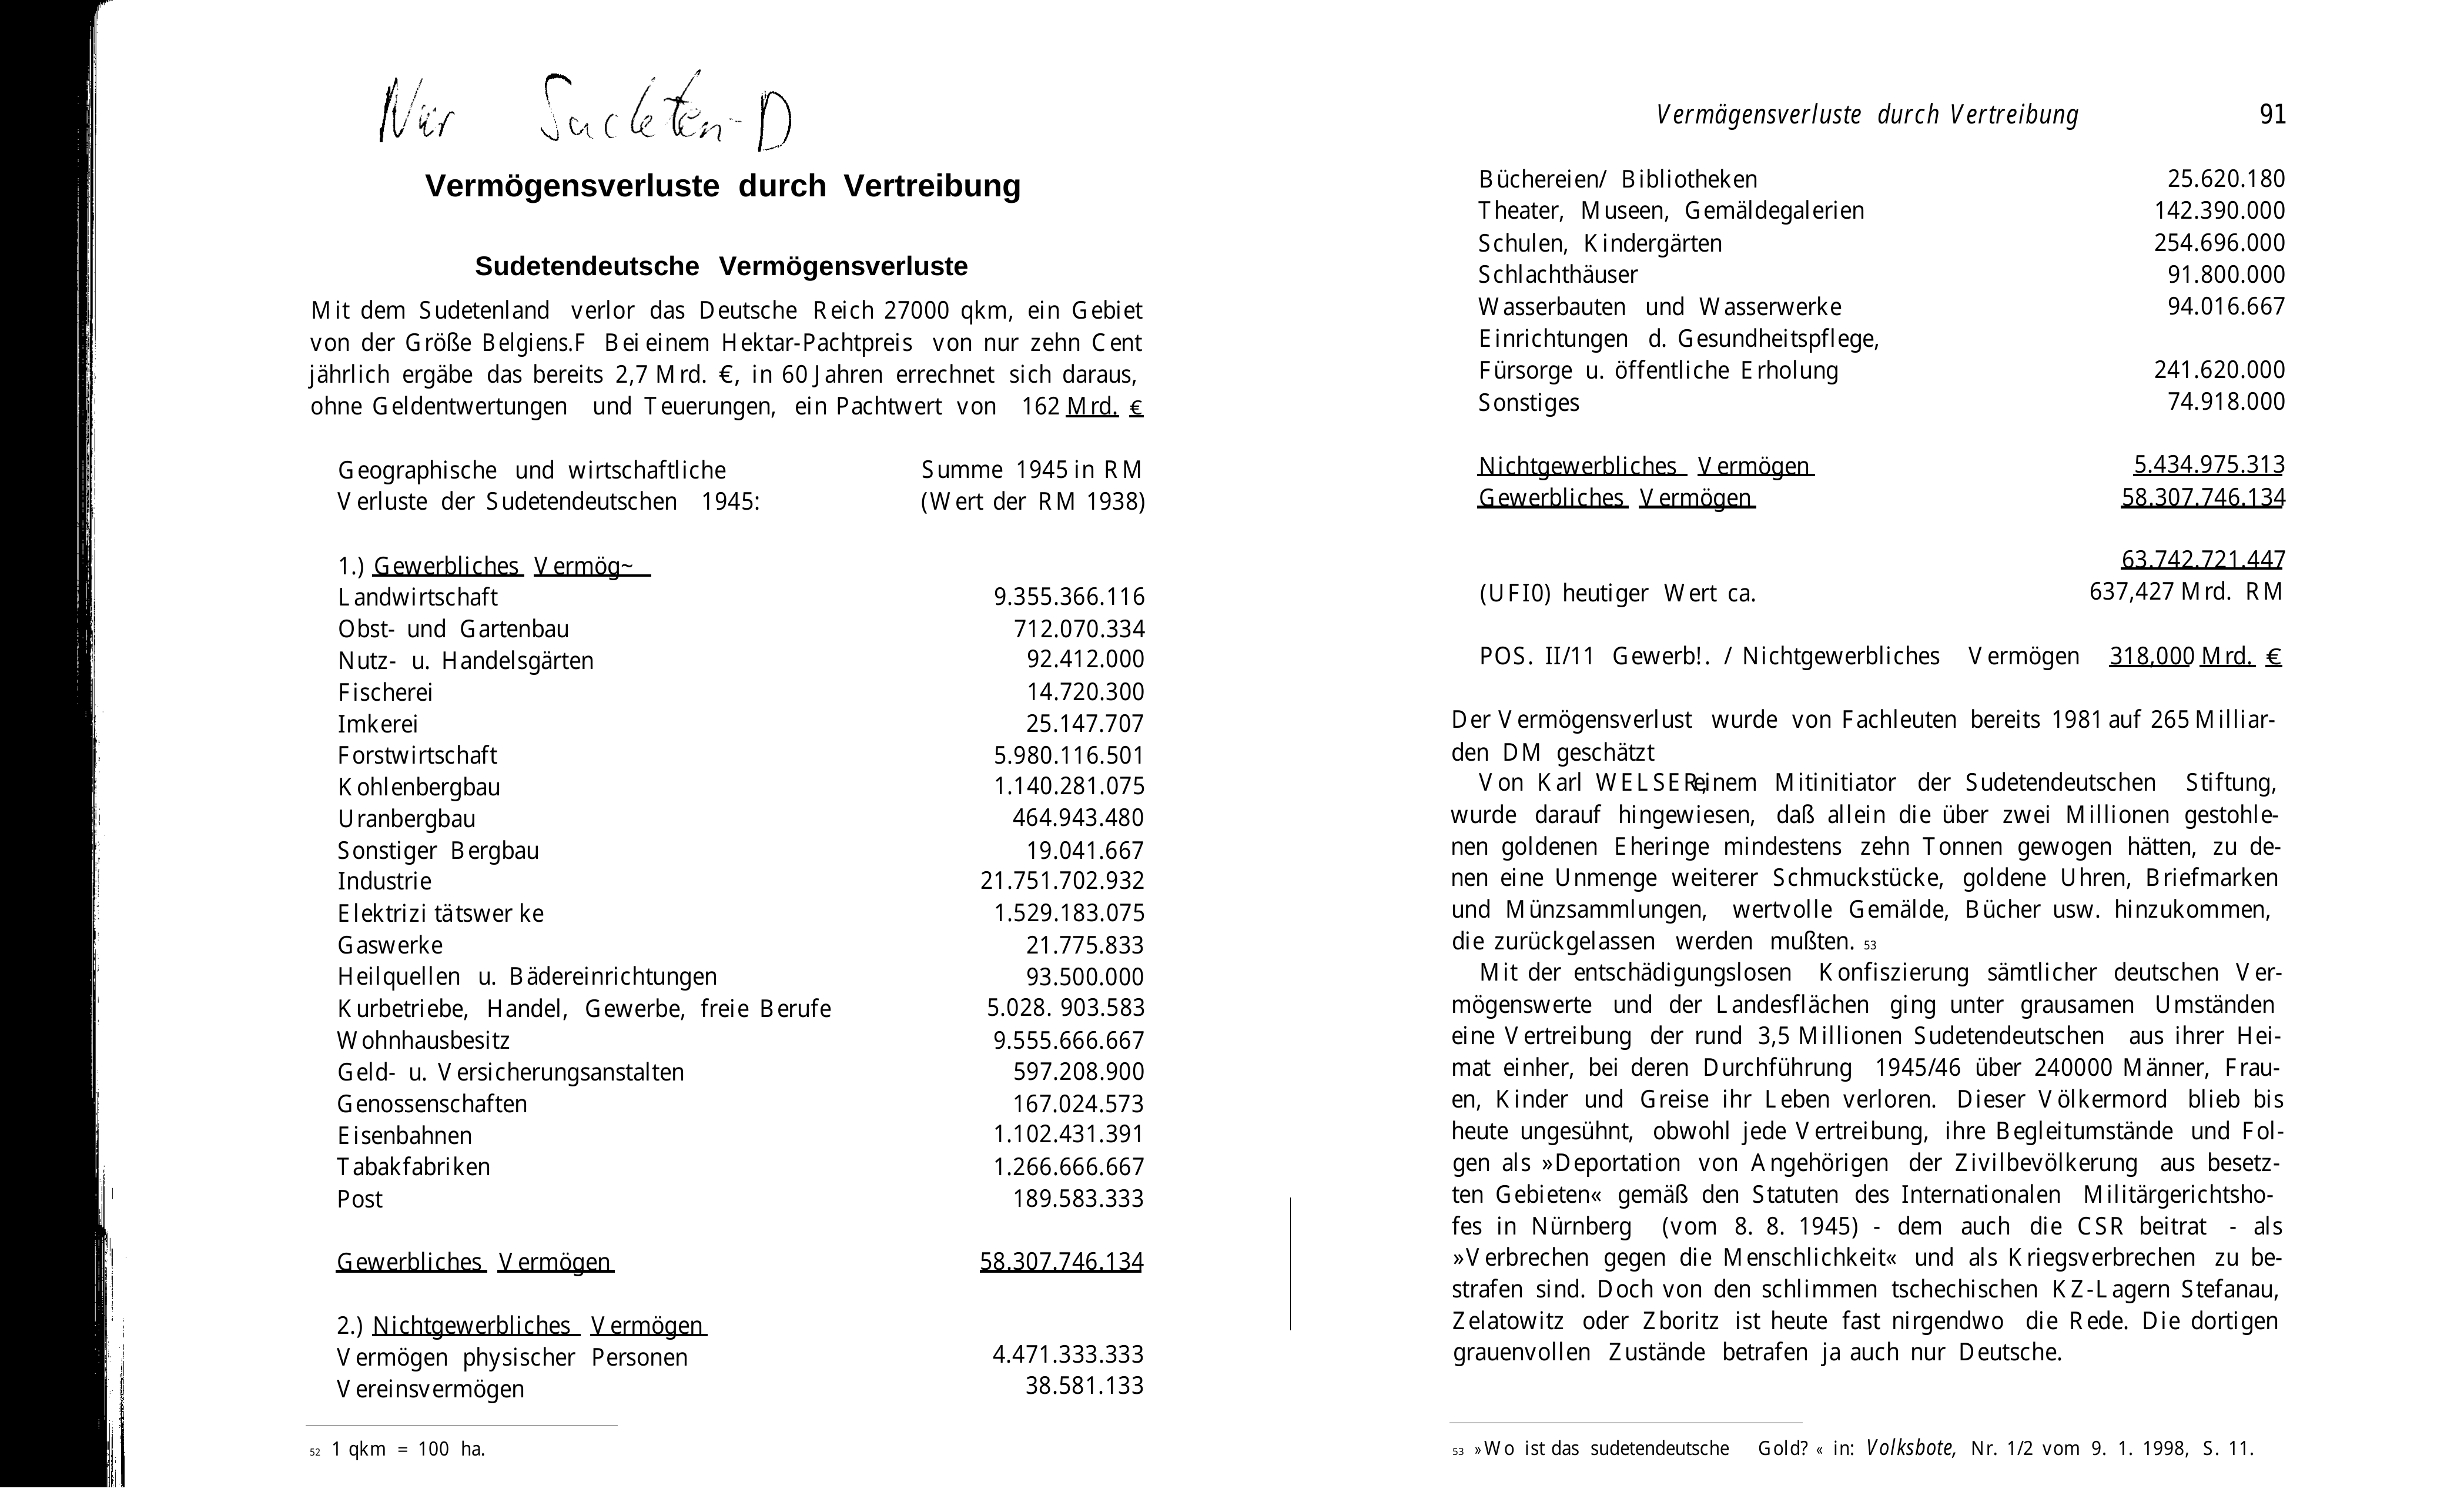 Nur Sudeten-D
Vermögensverluste durch Vertreibung
Sudetendeutsche Vermögensverluste
Mit dem Sudetenland verlor das Deutsche Reich 27000 qkm, ein Gebiet
von der Größe Belgiens.F Bei einem Hektar-Pachtpreis von nur zehn Cent
jährlich ergäbe das bereits 2,7 Mrd. €, in 60 Jahren errechnet sich daraus,
ohne Geldentwertungen und Teuerungen, ein Pachtwert von 162 Mrd. €
Geographische und wirtschaftliche Summe 1945 in RM
Verluste der Sudetendeutschen 1945: (Wert der RM 1938)
1.) Gewerbliches Vermög~
Landwirtschaft 9.355.366.116
Obst- und Gartenbau 712.070.334
Nutz- u. Handelsgärten 92.412.000
Fischerei 14.720.300
Imkerei 25.147.707
Forstwirtschaft 5.980.116.501
Kohlenbergbau 1.140.281.075
Uranbergbau 464.943.480
Sonstiger Bergbau 19.041.667
Industrie 21.751.702.932
Elektrizi tätswer ke 1.529.183.075
Gaswerke 21.775.833
Heilquellen u. Bädereinrichtungen 93.500.000
Kurbetriebe, Handel, Gewerbe, freie Berufe 5.028. 903.583
Wohnhausbesitz 9.555.666.667
Geld- u. Versicherungsanstalten 597.208.900
Genossenschaften 167.024.573
Eisenbahnen 1.102.431.391
Tabakfabriken 1.266.666.667
Post 189.583.333
Gewerbliches Vermögen 58.307.746.134
2.) Nichtgewerbliches Vermögen
Vermögen physischer Personen 4.471.333.333
Vereinsvermögen 38.581.133
52 1 qkm = 100 ha.
Vermägensverluste durch Vertreibung 91
Büchereien/ Bibliotheken 25.620.180
Theater, Museen, Gemäldegalerien 142.390.000
Schulen, Kindergärten 254.696.000
Schlachthäuser 91.800.000
Wasserbauten und Wasserwerke 94.016.667
Einrichtungen d. Gesundheitspflege,
Fürsorge u. öffentliche Erholung 241.620.000
Sonstiges 74.918.000
Nichtgewerbliches Vermögen 5.434.975.313
Gewerbliches Vermögen 58.307.746.134
63.742.721.447
(UFI0) heutiger Wert ca. 637,427 Mrd. RM
POS. II/11 Gewerb!. / Nichtgewerbliches Vermögen 318,000 Mrd. €
Der Vermögensverlust wurde von Fachleuten bereits 1981 auf 265 Milliar-
den DM geschätzt
Von Karl WELSER, einem Mitinitiator der Sudetendeutschen Stiftung,
wurde darauf hingewiesen, daß allein die über zwei Millionen gestohle-
nen goldenen Eheringe mindestens zehn Tonnen gewogen hätten, zu de-
nen eine Unmenge weiterer Schmuckstücke, goldene Uhren, Briefmarken
und Münzsammlungen, wertvolle Gemälde, Bücher usw. hinzukommen,
die zurückgelassen werden mußten. 53
Mit der entschädigungslosen Konfiszierung sämtlicher deutschen Ver-
mögenswerte und der Landesflächen ging unter grausamen Umständen
eine Vertreibung der rund 3,5 Millionen Sudetendeutschen aus ihrer Hei-
mat einher, bei deren Durchführung 1945/46 über 240000 Männer, Frau-
en, Kinder und Greise ihr Leben verloren. Dieser Völkermord blieb bis
heute ungesühnt, obwohl jede Vertreibung, ihre Begleitumstände und Fol-
gen als »Deportation von Angehörigen der Zivilbevölkerung aus besetz-
ten Gebieten« gemäß den Statuten des Internationalen Militärgerichtsho-
fes in Nürnberg (vom 8. 8. 1945) - dem auch die CSR beitrat - als
»Verbrechen gegen die Menschlichkeit« und als Kriegsverbrechen zu be-
strafen sind. Doch von den schlimmen tschechischen KZ-Lagern Stefanau,
Zelatowitz oder Zboritz ist heute fast nirgendwo die Rede. Die dortigen
grauenvollen Zustände betrafen ja auch nur Deutsche.
53 »Wo ist das sudetendeutsche Gold? « in: Volksbote, Nr. 1/2 vom 9. 1. 1998, S. 11.